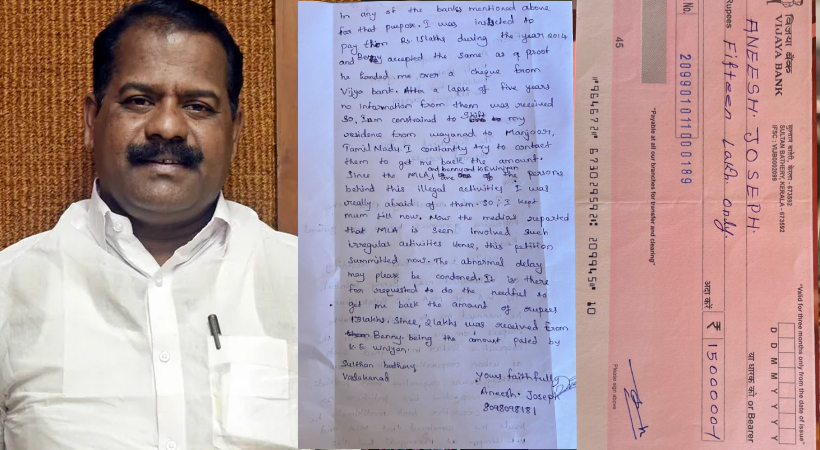 In any of the banks mentioned above
for that purpose. I was instructed to
pay them Rs. 15 laths during the year 2014
and Benny accepted the same as a proof
he handed me over a cheque from
Vijya bank. After a lapse of five years
no information from them was received
so, I am constrained to shift my
residens from wayanad to Manjoor,
Tamil Nadu. I constantly try to contact
them to get me back the amount.
and benny and
Since the MLA, the persons
behind this illegal activities I was
really afraid of them. so, I kept
mum till now. Now the medias reported
that MLA is seen involved such
irregular activities Hence, this petition
summitted now. The abnormal delay
may please be condoned. It is there
for requested to do the needful to
get me back the amount of rupees
13 lakhs. Since, 2 lakhs was received from
Benny being the amount paled by
Sulthan bathery
Vadakanad
Yours faithfully
Aneesh. Joseph
8098098181
विजया बैंक
VIJAYA BANK
SULTAN BATHERY, KERALA - 673592
"Valid for three months only from the date of issue"
D D M M Y Y Y Y
ANEESH. JOSEPH.
या धारक को or Bearer
Rupees Fifteen Lakh only.
अदा करें ₹ 1500000/-
No. 209901011000189
45
"Payable at all our branches for transfer and clearing"
Please sign above